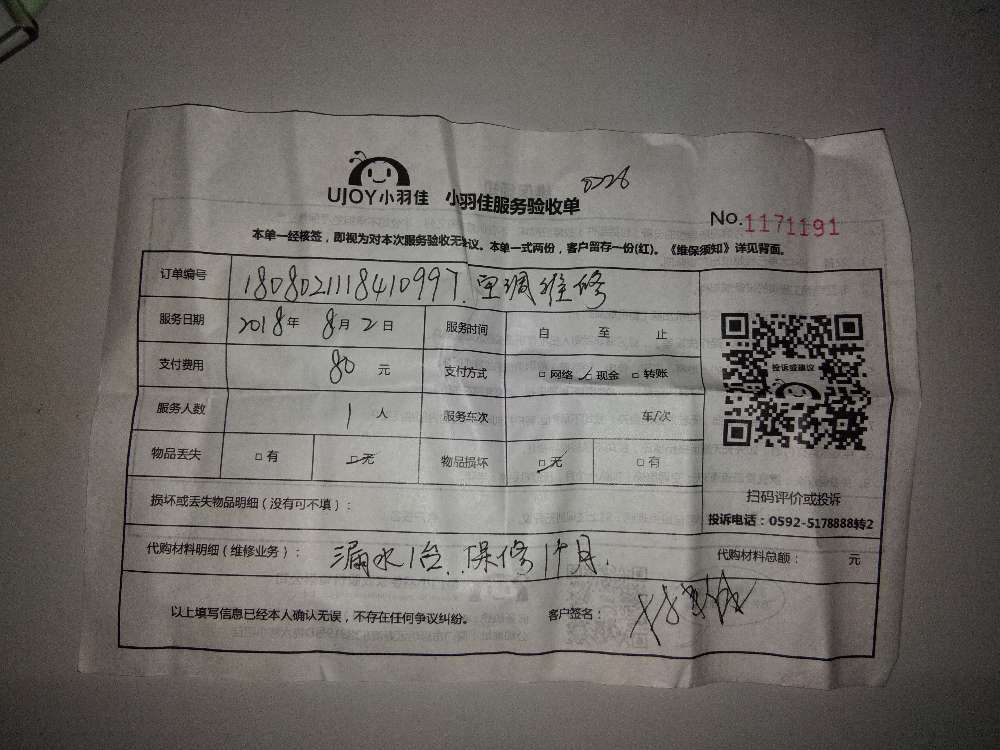 UJOY小羽佳 小羽佳服务验收单 0226
No. 1171191
本单一经核签，即视为对本次服务验收无争议。本单一式两份，客户留存一份(红)。《维保须知》详见背面。
订单编号 1808021118410997. 空调维修
服务日期 2018年 8月 2日 服务时间 自 至 止
支付费用 80 元 支付方式 □网络 ☑现金 □转账
投诉或建议
服务人数 1 人 服务车次 车/次
物品丢失 □有 ☑无 物品损坏 ☑无 □有
损坏或丢失物品明细（没有可不填）：
扫码评价或投诉
投诉电话：0592-5178888转2
代购材料明细（维修业务）： 漏水1台. 保修1个月. 代购材料总额： 元
以上填写信息已经本人确认无误，不存在任何争议纠纷。 客户签名：